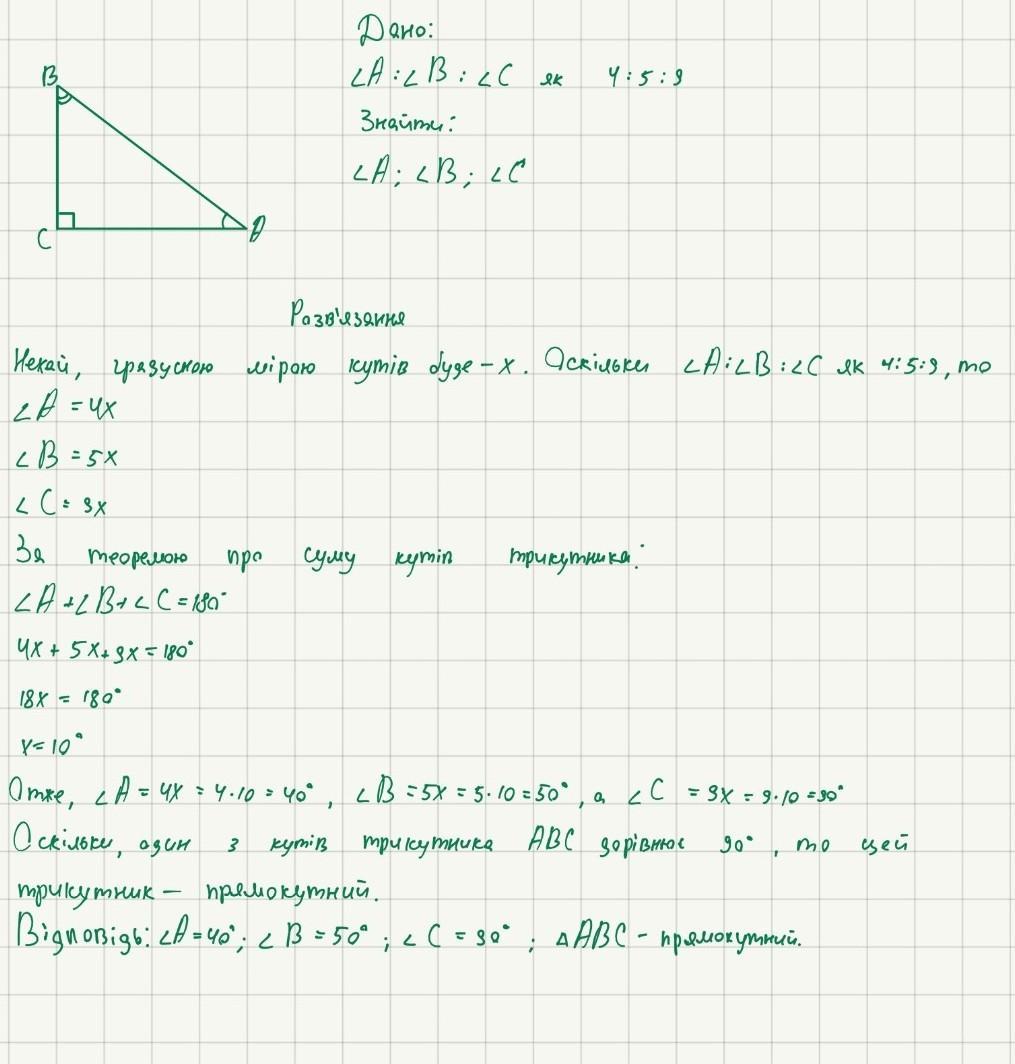 Дано:
∠A : ∠B : ∠C як 4 : 5 : 9
Знайти:
∠A; ∠B; ∠C
B
C
A
Розв'язання
Нехай, градусною мірою кутів буде - x. Оскільки ∠A:∠B:∠C як 4:5:9, то
∠A = 4x
∠B = 5x
∠C = 9x
За теоремою про суму кутів трикутника:
∠A+∠B+∠C=180°
4x + 5x+9x=180°
18x = 180°
x=10°
Отже, ∠A = 4x = 4·10 = 40°, ∠B =5x = 5·10=50°, а ∠C = 9x = 9·10=90°
Оскільки, один з кутів трикутника ABC дорівнює 90°, то цей
трикутник — прямокутний.
Відповідь: ∠A=40°; ∠B = 50°; ∠C = 90°; △ABC - прямокутний.